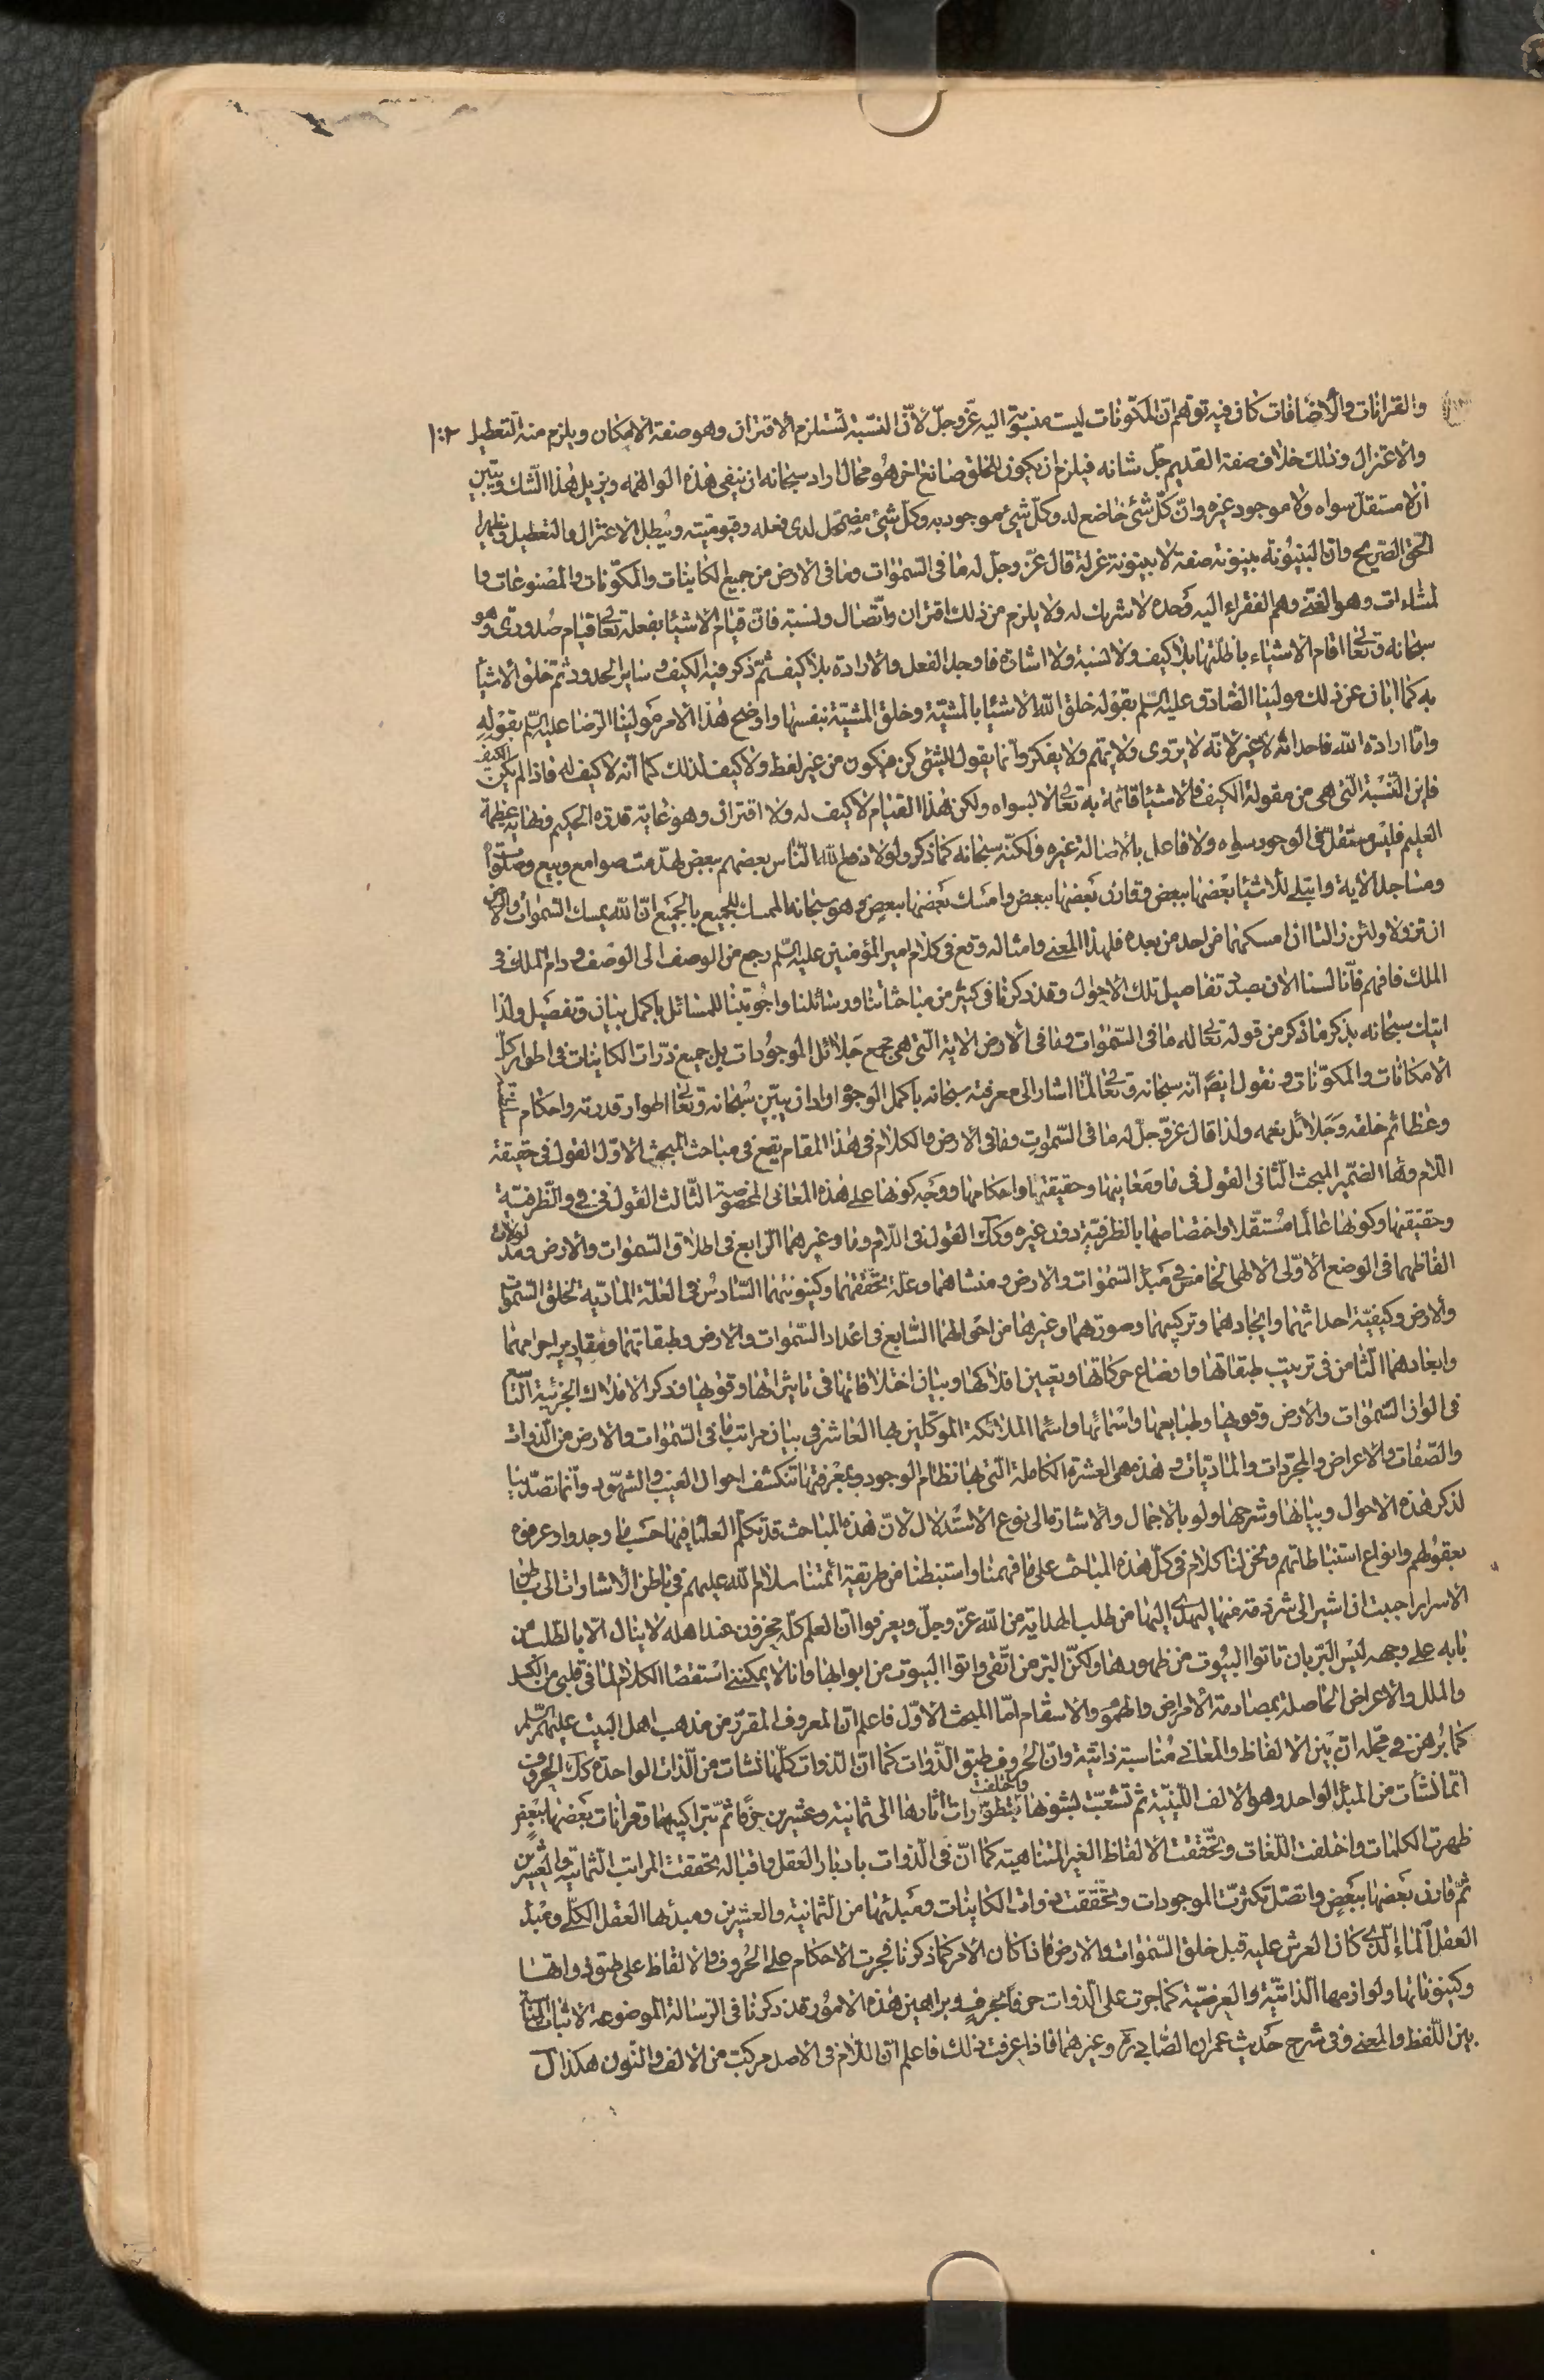 والقرانات والاضافات كان فيه توهم ان المكونات ليست منسوبة اليه عز وجل لان النسبة تستلزم الاقتران وهو صفة الامكان ويلزم منه التعطيل
والاعتزال وذلك خلاف صفة القديم جل شانه فيلزم ان يكون للخلق صانع اخر هو محال اراد سبحانه ان ينفى هذه الواهمه ويزيل هذا الشك ويبين
ان لا مستقل سواه ولا موجود غيره وان كل شئ خاضع له وكل شئ موجود به وكل شئ مضمحل لدى فعله وقيوميته ويبطل الاعتزال والتعطيل ويظهر
الحق الصريح وان البينونة بينونة صفة لا بينونة عزلة قال عز وجل له ما فى السموات وما فى الارض من جميع الكاينات والمكونات والمصنوعات وا
لمشاءات وهو الغنى وهم الفقراء اليه وحده لا شريك له ولا يلزم من ذلك اقتران واتصال ونسبة فان قيام الاشيا بفعله تعالى قيام صدورى وهو
سبحانه وتعالى اقام الاشياء باظلتها بلا كيف ولا نسبة ولا اشارة فاوجد الفعل والارادة بلا كيف ثم ذكر فيه الكيف وساير الحدود ثم خلق الاشيا
به كما ابان عن ذلك مولينا الصادق عليه السلم بقوله خلق الله الاشيا بالمشية وخلق المشية بنفسها واوضح هذا الامر مولينا الرضا عليه السلم بقوله
واما ارادة الله فاحداثه لا غير لانه لا يروى ولا يهتم ولا يفكر وانما يقول للشئ كن فيكون من غير لفظ ولا كيف لذلك كما انه لا كيف له فاذا لم يكن الكيف
فاين النسبة التى هى من مقولة الكيف فالاشيا قائمة به تعالى لا بسواه ولكن هذا القيام لا كيف له ولا اقتران وهو غاية قدرة الحكيم ونهاية عظمة
العليم فليس مستقل فى الوجود سواه ولا فاعل بالاصالة غيره ولكنه سبحانه كما ذكر ولولا دفع الله الناس بعضهم ببعض لهدمت صوامع وبيع وصلوات
ومساجد الاية وابتلى الاشيا بعضها ببعض وقارن بعضها ببعض وامسك بعضها ببعض وهو سبحانه الممسك للجميع بالجميع ان الله يمسك السموات والارض
ان تزولا ولئن زالتا ان امسكهما من احد من بعده فلهذا المعنى وامثاله وقع فى كلام امير المؤمنين عليه السلم رجع من الوصف الى الوصف ودام الملك فى
الملك فافهم فانا لسنا الان بصدد تفاصيل تلك الاحوال وقد ذكرنا فى كثير من مباحثاتنا ورسائلنا واجوبتنا للمسائل باكمل بيان وتفصيل ولذا
سبحانه بذكر ما ذكر من قوله تعالى له ما فى السموات وما فى الارض الاية التى هى مجمع جلائل الموجودات بل جميع ذرات الكاينات فى اطوار كل
الامكانات والمكونات ونقول ايضا انه سبحانه وتعالى لما اشار الى معرفته سبحانه باكمل الوجوه اراد ان يبين سبحانه وتعالى اطوار قدرته واحكام
وعظائم خلقه وجلائل نعمه ولذا قال عز وجل له ما فى السموات وما فى الارض والكلام فى هذا المقام يقع فى مباحث المبحث الاول القول فى حقيقة
اللام وها الضمير المبحث الثانى القول فى ما ومعانيها وحقيقتها واحكامها ووجه كونها على هذه المعانى المخصوصة الثالث القول فى فى والظرفية
وحقيقتها وكونها عالما مستقلا واختصاصها بالظرفية دون غيره وكك القول فى اللام وما وغيرهما الرابع فى اطلاق السموات والارض ومدلولات
الفاظهما فى الوضع الاولى الالهى الخامس فى مبدء السموات والارض ومنشاهما وعلة تحققهما وكينونتهما السادس فى العلة المادية لخلق السموات
والارض وكيفية احداثهما وايجادهما وتركيبهما وصورتهما وغيرها من احوالهما السابع فى اعداد السموات والارض وطبقاتهما ومقادير اجرامهما
وابعادهما الثامن فى ترتيب طبقاتها واوضاع حركاتها وتعيين افلاكها وبيان اختلافاتها فى تاثيراتها وقوتها وذكر الافلاك الجزئية التاسع
فى الوان السموات والارض وقوتها وطبايعها واسمائها واسما الملائكة الموكلين بها العاشر فى بيان مراتب ما فى السموات والارض من الذوات
والصفات والاعراض والمجردات والماديات وهذه هى العشرة الكاملة التى بها نظام الوجود وبمعرفتها تنكشف احوال الغيب والشهود وانما تصدينا
لذكر هذه الاحوال وبيانها وشرحها ولو بالاجمال والاشارة الى نوع الاستدلال لان هذه المباحث قد تكلم العلما فيها حسب ما وجدوا وعرفوه
بعقولهم وانواع استنباطاتهم ونحن لنا كلام فى كل هذه المباحث على ما فهمنا واستنبطنا من طريقة ائمتنا سلام الله عليهم فى باطن الاشارات الى باطن
الاسرار احببت ان اشير الى شرذمة منها ليهتدى اليها من طلب الهداية من الله عز وجل ويعرفوا ان العلم كله مخزون عند اهله لا ينال الا بالطلب من
بابه على وجهه ليس البر بان تاتوا البيوت من ظهورها ولكن البر من اتقى واتوا البيوت من ابوابها وانا لا يمكننى استقصا الكلام لما فى قلبى من الكسل
والملل والاعراض الحاصلة بمصادمة الامراض والهموم والاسقام اما المبحث الاول فاعلم ان المعروف المقرر من مذهب اهل البيت عليهم السلم
كما برهن فى محله ان بين الالفاظ والمعانى مناسبة ذاتية وان الحروف طبق الذوات كما ان الذوات كلها نشات من الذات الواحدة كك الحروف
انما نشأت من المبدء الواحد وهو الالف اللينية ثم تشعبت بشونها بتطورات واختلفت اثارها الى ثمانية وعشرين حرفا ثم بتراكيبها وقرانات بعضها ببعض
ظهرت الكلمات واختلفت اللغات وتحققت الالفاظ الغير المتناهية كما ان فى الذوات بادبار العقل واقباله تحققت المراتب الثمانية والعشرين
ثم قارن بعضها ببعض واتصل تكثرت الموجودات وتحققت ذوات الكاينات ومبدئها من الثمانية والعشرين ومبدئها العقل الكلى ومبدء
العقل الماء الذى كان العرش عليه قبل خلق السموات والارض فاذا كان الامر كما ذكرنا فجرت الاحكام على الحروف والالفاظ على طبق ذواتها
وكينوناتها ولوازمها الذاتية والعرضية كما جرت على الذوات حرفا بحرف وبراهين هذه الامور قد ذكرنا فى الرسالة الموضوعة لاثبات المناسبة
بين اللفظ والمعنى وفى شرح حديث عمران الصابى وغيرهما فاذا عرفت ذلك فاعلم ان اللام فى الاصل مركبت من الالف والنون هكذا ل